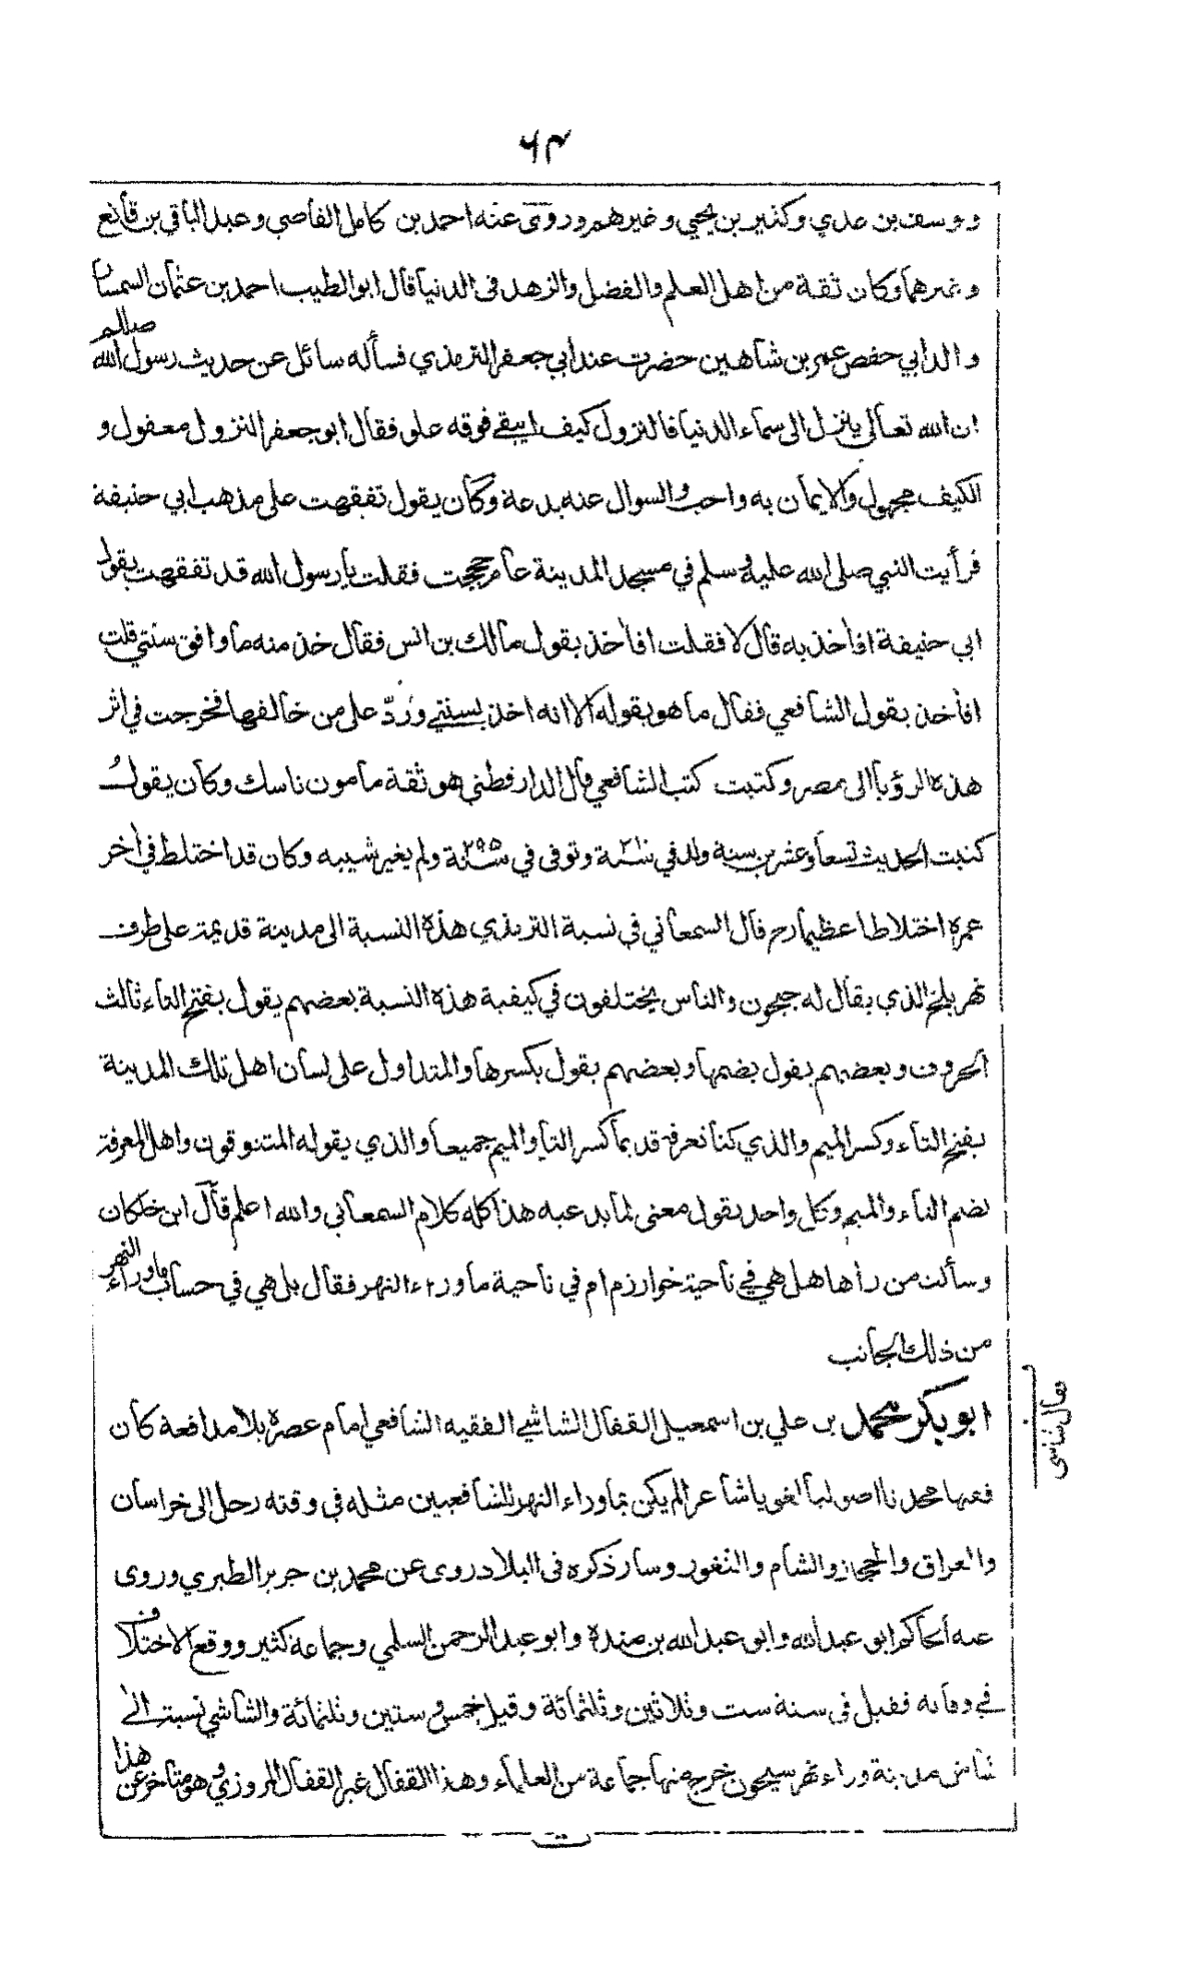 ۶۴
ويوسف بن عدي وكثير بن يحيي وغيرهم وروى عنه احمد بن كامل القاضي وعبد الباقي بن قانع
وغيرهما وكان ثقة من اهل العلم والفضل والزهد فى الدنيا قال ابو الطيب احمد بن عثمان السمسار
والد ابي حفص عمر بن شاهين حضرت عند ابي جعفر الترمذي فسأله سائل عن حديث رسول الله صللم
ان الله تعالى ينزل الى سماء الدنيا فالنزول كيف يبقے فوقه علو فقال ابو جعفر النزول معقول و
الكيف مجهول والايمان به واجب والسوال عنه بدعة وكان يقول تفقهت على مذهب ابي حنيفة
فرأيت النبي صلى الله عليه وسلم في مسجد المدينة عام حججت فقلت يا رسول الله قد تفقهت بقول
ابي حنيفة افأخذ به قال لا فقلت افأخذ بقول مالك بن انس فقال خذ منه ما وافق سنتي قلت
افأخذ بقول الشافعي فقال ما هو بقوله الا انه اخذ بسنتے وردّ على من خالفها فخرجت في اثر
هذه الرؤيا الى مصر وكتبت كتب الشافعي قال الدارقطني هو ثقة مامون ناسك وكان يقول
كتبت الحديث تسعا وعشرين سنة ولد في سنة ۲۱۰ وتوفى في سنة ۲۹۵ ولم يغير شيبه وكان قد اختلط في أخر
عمره اختلاطا عظيما رح قال السمعاني في نسبة الترمذي هذه النسبة الى مدينة قديمة على طرف
نهر بلخ الذي يقال له جيحون والناس يختلفون في كيفية هذه النسبة بعضهم يقول بفتح التاء ثالث
الحروف وبعضهم يقول بضمها وبعضهم يقول بكسرها والمتداول على لسان اهل تلك المدينة
بفتح التاء وكسر الميم والذي كنا نعرفه قديما كسر التاء والميم جميعا والذي يقوله المتنوقون واهل المعرفة
بضم التاء والميم وكل واحد يقول معنى لما يدعيه هذا كله كلام السمعاني والله اعلم قال ابن خلكان
وسألت من رأها هل هي في ناحية خوارزم ام في ناحية ما وراء النهر فقال بل هي في حساب ما وراء النهر
من ذلك الجانب
ابو بكر محمد بن علي بن اسمعيل القفال الشاشي الفقيه الشافعي امام عصره بلا مدافعة كان
فقيها محدثا اصوليا لغويا شاعرا لم يكن بما وراء النهر للشافعيين مثله في وقته رحل الى خراسان
والعراق والحجاز والشام والثغور وسار ذكره فى البلاد روى عن محمد بن جرير الطبري وروى
عنه الحاكم ابو عبد الله وابو عبد الله بن مندة وابو عبد الرحمن السلمي وجماعة كثير ووقع الاختلاف
في وفاته فقيل فى سنة ست وثلاثين وثلثمائة وقيل خمس وستين وثلثمائة والشاشي نسبته الى
شاش مدينة وراء نهر سيحون خرج منها جماعة من العلماء وهذا القفال غير القفال المروزي وهو متأخر عن هذا
قفال شاشى